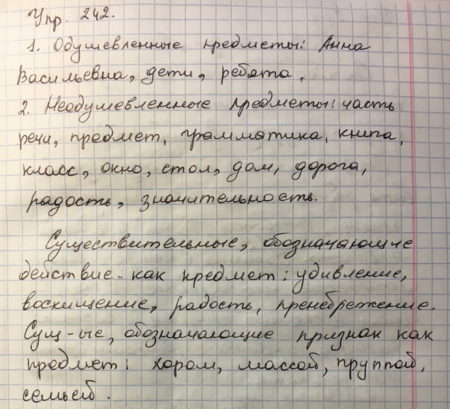 Упр 242.
1. Одушевленные предметы: Анна
Васильевна, дети, ребята.
2. Неодушевленные предметы: часть
речи, предмет, грамматика, книга,
класс, окно, стол, дом, дорога,
радость, значительность.
Существительные, обозначающие
действие как предмет: удивление,
восхищение, радость, пренебрежение.
Сущ-ые, обозначающие признак как
предмет: хором, массой, группой,
семьей.